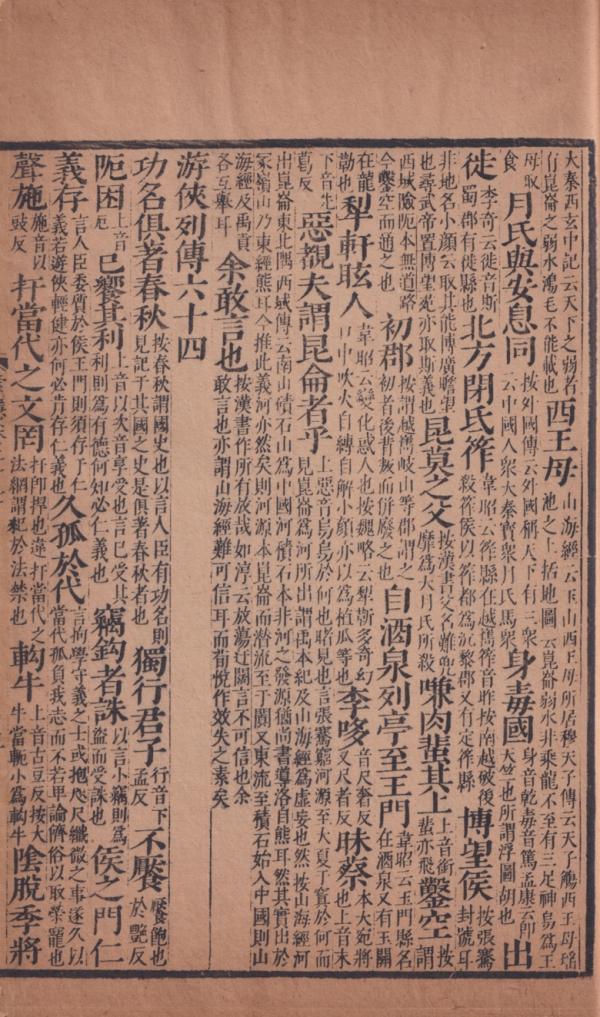 大秦西玄中記云天下之弱者有崑崙之弱水鴻毛不能載也西王母山海經云玉山西王母所居穆天子傳云天子觴西王母瑤池之上括地圖云崑崙弱水非乘龍不至有三足神烏爲王
母取食月氏與安息同按外國傳云外國稱天下有三衆云中國人衆大秦寳衆月氏馬衆身毒國身音乾毒音篤孟康云即天竺也所謂浮圖胡也出
徙李奇云徙音斯蜀郡有徙縣也北方閉氐筰韋昭云筰縣在越嶲筰音昨按南越破後殺筰侯以筰都爲沉黎郡又有定筰縣博望侯按張騫封號耳
非地名小顏云取其能博廣瞻望也尋武帝置博望苑亦取斯義也昆莫之父按漢書父名難兜靡爲大月氏所殺嗛肉蜚其上上音銜蜚亦飛鑿空按謂
西域險阨本無道路今鑿空而通之也初郡按謂越嶲岐山等郡謂之初者後背叛而併廢之也自酒泉列亭至玉門韋昭云玉門縣名在酒泉又有玉關
在龍勒也犁軒眩人韋昭云變化惑人也按魏略云犁靳多奇幻口中吹火自縛自解小顏亦以爲植瓜等也李哆音尺奢反又尺者反昧蔡本大宛將也上音末
下音先葛反惡覩夫謂昆侖者乎上惡音烏烏於何也睹見也言張騫窮河源至大夏于寘於何而見崑崙爲河所出謂禹本紀及山海經爲虛妄也然按山海經河
出崑崙東北隅西域傳云南山積石山爲中國河積石本非河之發源猶尚書導洛自熊耳然其實出於冢嶺山乃東經熊耳今推此義河亦然矣則河源本崑崙而潛流至于闐又東流至積石始入中國則山
海經及禹貢各互舉耳余敢言也按漢書作所有放哉如淳云放蕩迂闊言不可信也余敢言也亦謂山海經難可信耳而荀悅作效失之素矣
游俠列傳六十四
功名俱著春秋按春秋謂國史也以言人臣有功名則見記于其國之史是俱著春秋者也獨行君子行音下孟反不厭厭飽也於艷反
阨困上音厄已饗其利上音以次音享受也言已受其利則爲有德何知必仁義也竊鉤者誅以言小竊則爲盜而受誅也侯之門仁
義存言人臣委質於侯王門則須存于仁義若遊俠輕健亦何必肯存仁義也久孤於代言拘學守義之士或抱咫尺纖微之事遂久以當代孤負我志而不若卑論儕俗以取榮寵也
聲施施音以豉反扞當代之文罔扞即捍也違扞當代之法網謂犯於法禁也軥牛上音古豆反按大牛當軶小爲軥牛陰脫季將